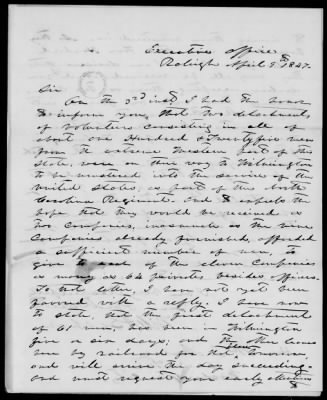 Executive Office
Raleigh April 9th 1847.
Sir
On the 3rd inst, I had the honor
to inform you, that two detachments
of Volunteers consisting in all of
about one Hundred & twenty five men
from the extreme Western part of this
State, were on their way to Wilmington
to be mustered into the service of the
United States, as part of the North
Carolina Regiment. and to express the
hope that they would be received as
two Companies, inasmuch as the nine
Companies already furnished, afforded
a sufficient number of men, to
give to each of the eleven Companies
as many as 64 privates besides officers.
To that letter, I have not yet been
favored with a reply; I have now
to state, that the first detachment
of 61 men, has been in Wilmington
five or six days; and the other leaves
here by railroad for that place, tomorrow,
and will arrive the day succeeding.
and must request your early attention